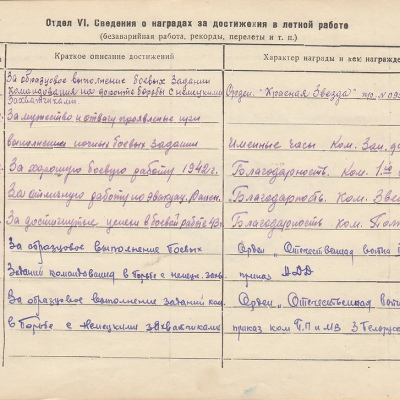 Отдел VI. Сведения о наградах за достижения в летной работе
(безаварийная работа, рекорды, перелеты и т. п.)
Краткое описание достижений
Характер награды и кем награжден
За образцовое выполнение боевых заданий
командования на фронте борьбы с немецкими
захватчиками.
Орден. "Красная Звезда"
За мужество и отвагу проявленые при
выполнении ночных боевых заданий
Именные часы Ком. Зап.
За хорошую боевую работу 1942 г.
Благодарность. Ком. 1
За отличную работу по эвакуац. Ранен.
Благодарность. ком.
За достигнутые успехи в боевой работе 43
Благодарность ком. Полк
За образцовое выполнение боевых
Орден „ Отечественная война
Заданий командования в борьбе с немецк.
приказ АДД
За образцовое выполнение заданий ком.
Орден „ Отечественная
в борьбе с немецкими захватчиками
приказ ком 3 Белорус